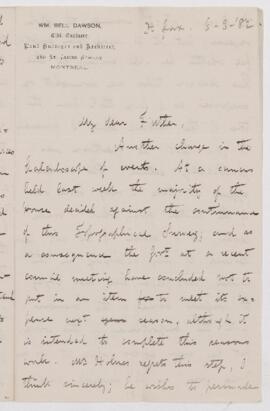 WM. BELL DAWSON,
Civil Engineer
Land Surveyor and Architect,
MONTREAL.
H'fax. 9-3-'82
My dear Father,
Another change in the
kaleidoscope of events. At a caucus
held last week the majority of the
house decided against the continuance
of this Topographical Survey; and as
a consequence the Govt at a recent
council meeting have concluded not to
put in an item to meet its ex-
pense next season, although it
is intended to complete this seasons
work. Mr Holmes regrets this step, I
think sincerely; he wishes to persuade